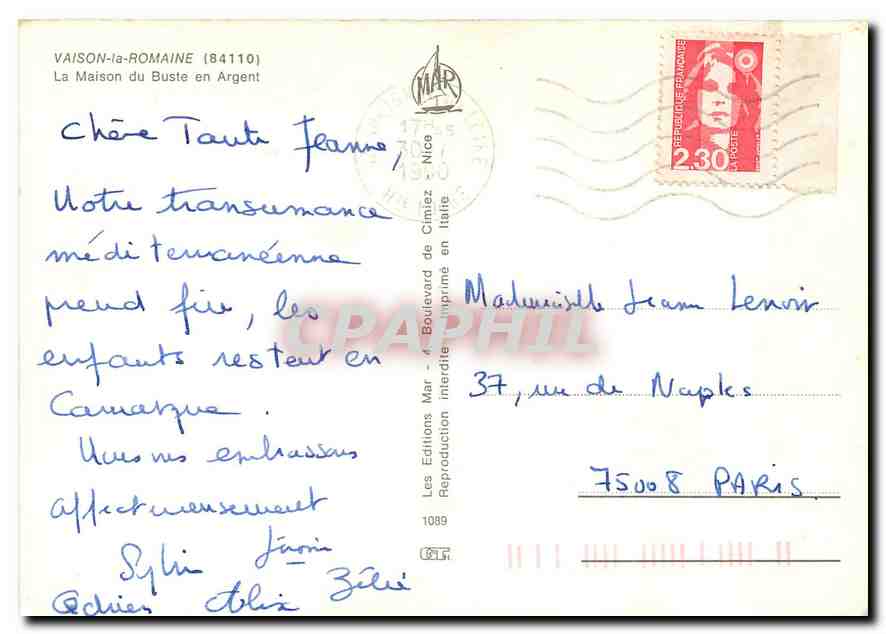 VAISON-la-ROMAINE (84110)
La Maison du Buste en Argent
MAR
17H
30-7
1990
RÉPUBLIQUE FRANÇAISE
2,30
LA POSTE
Chère Tante Jeanne,
Notre transumance
méditerranéenne
prend fin, les
enfants restent en
Camargue.
Nous vous embrassons
affectueusement
Sylvie
Adrien Alix Zélie
Les Editions Mar - 4 Boulevard de Cimiez Nice
Reproduction interdite Imprimé en Italie
1089
CPAPHIL
Mademoiselle Jeanne Lenoir
37, rue de Naples
75008 PARIS